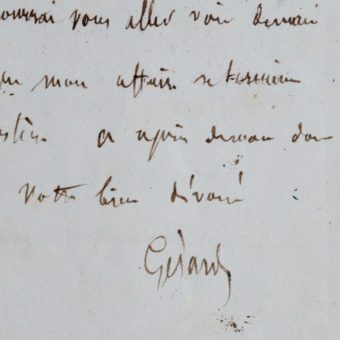 pourrai vous aller voir demain
mon affaire se termine
à après demain donc
Votre bien dévoué
Gérard